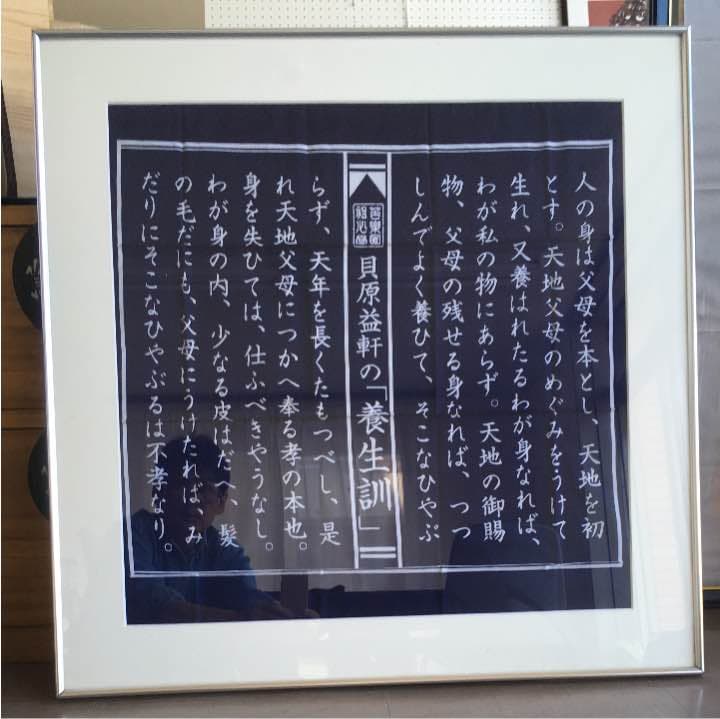 人の身は父母を本とし、天地を初
とす。天地父母のめぐみをうけて
生れ、又養はれたるわが身なれば、
わが私の物にあらず。天地の御賜
物、父母の残せる身なれば、つつ
しんでよく養ひて、そこなひやぶ
貝原益軒の「養生訓」
らず、天年を長くたもつべし、是
れ天地父母につかへ奉る孝の本也。
身を失ひては、仕ふべきやうなし。
わが身の内、少なる皮はだへ、髪
の毛だにも、父母にうけたれば、み
だりにそこなひやぶるは不孝なり。